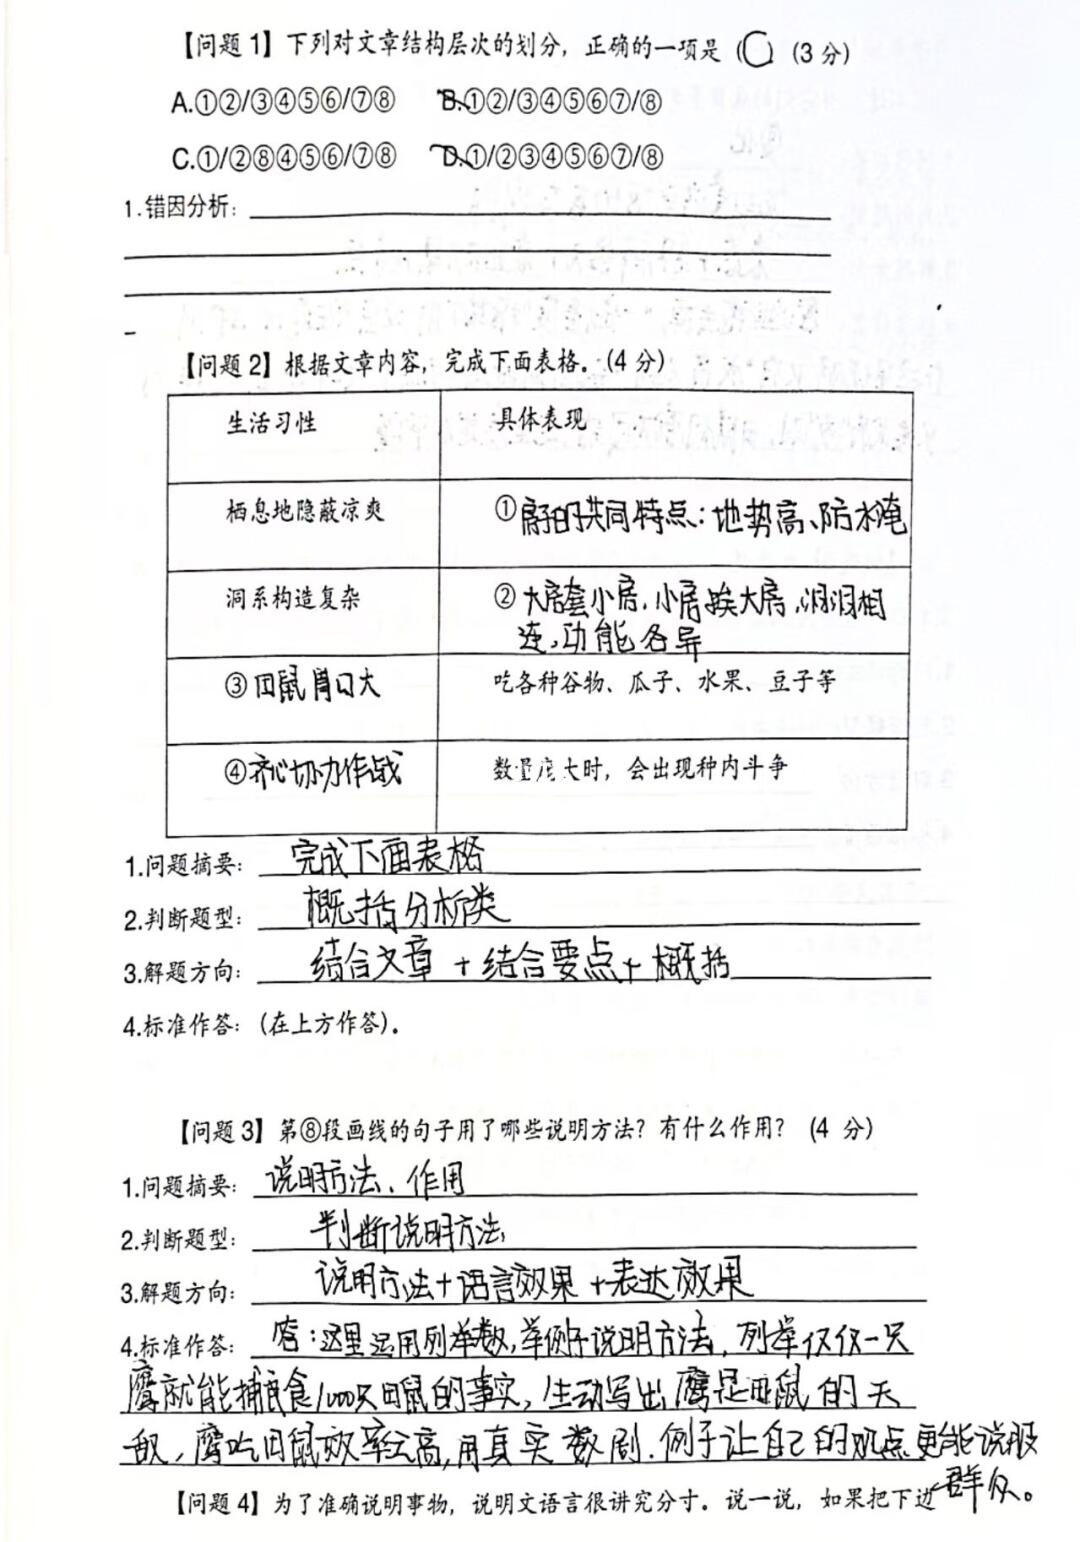 【问题 1】下列对文章结构层次的划分，正确的一项是（C）(3 分)
A.①②/③④⑤⑥/⑦⑧ B.①②/③④⑤⑥⑦/⑧
C.①/②⑧④⑤⑥/⑦⑧ D.①/②③④⑤⑥⑦/⑧
1.错因分析：
【问题 2】根据文章内容，完成下面表格。(4 分)
生活习性 具体表现
栖息地隐蔽凉爽 ①窝的共同特点：地势高、防水淹
洞系构造复杂 ②大房套小房，小房挨大房，洞洞相
连，功能各异
③田鼠胃口大 吃各种谷物、瓜子、水果、豆子等
④齐心协力作战 数量庞大时，会出现种内斗争
1.问题摘要：完成下面表格
2.判断题型：概括分析类
3.解题方向：结合文章+结合要点+概括
4.标准作答：(在上方作答)。
【问题 3】第⑧段画线的句子用了哪些说明方法？有什么作用？ (4 分)
1.问题摘要：说明方法、作用
2.判断题型：判断说明方法
3.解题方向：说明方法+语言效果+表达效果
4.标准作答：答：这里运用列举数，举例子说明方法，列举仅仅一只
鹰就能捕食1000只田鼠的事实，生动写出鹰是田鼠的天
敌，鹰吃田鼠效率之高，用真实数剧、例子让自己的观点更能说服
群众。
【问题 4】为了准确说明事物，说明文语言很讲究分寸。说一说，如果把下边